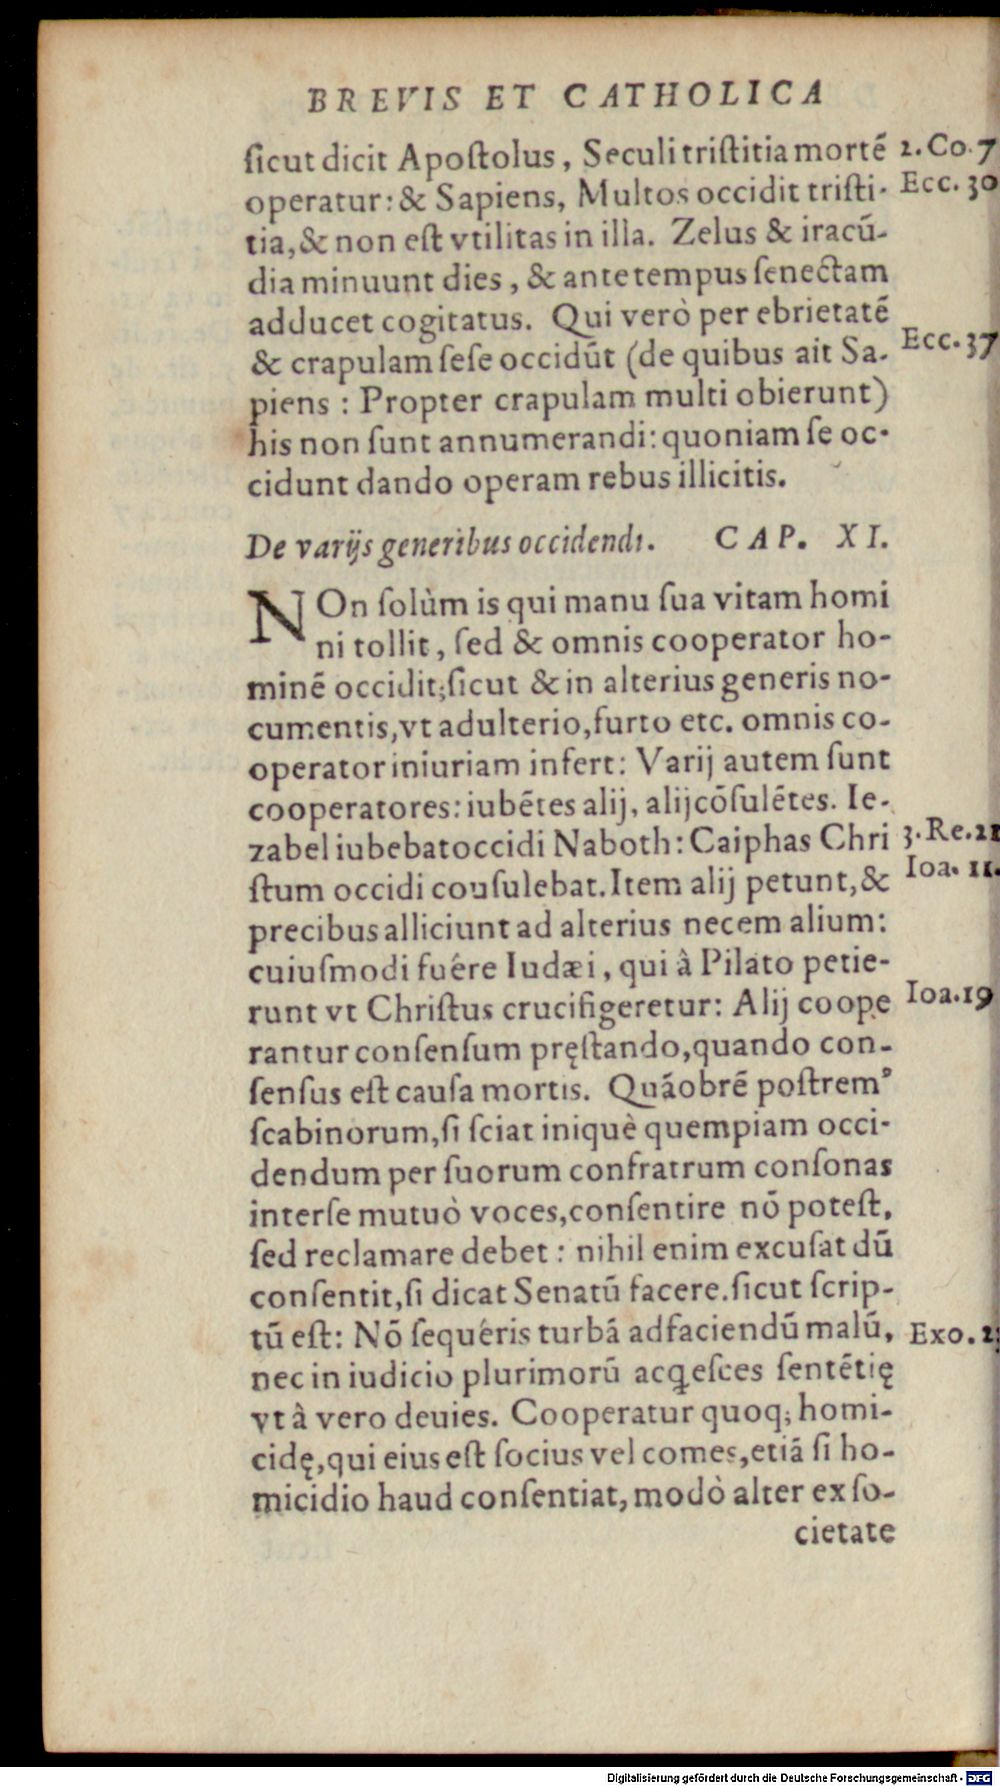 BREVIS ET CATHOLICA
ſicut dicit Apoſtolus, Seculi triſtitia mortē 2. Co. 7
operatur: & Sapiens, Multos occidit triſti- Ecc. 30
tia, & non eſt vtilitas in illa. Zelus & iracū-
dia minuunt dies, & ante tempus ſenectam
adducet cogitatus. Qui verò per ebrietatē
& crapulam ſeſe occidūt (de quibus ait Sa- Ecc. 37
piens : Propter crapulam multi obierunt)
his non ſunt annumerandi: quoniam ſe oc-
cidunt dando operam rebus illicitis.
De varijs generibus occidendi. CAP. XI.
NOn ſolùm is qui manu ſua vitam homi
ni tollit, ſed & omnis cooperator ho-
minē occidit; ſicut & in alterius generis no-
cumentis, vt adulterio, furto etc. omnis co-
operator iniuriam infert: Varij autem ſunt
cooperatores: iubētes alij, alij cōſulētes. Ie-
zabel iubebat occidi Naboth: Caiphas Chri 3. Re. 21
ſtum occidi couſulebat. Item alij petunt, & Ioa. 11.
precibus alliciunt ad alterius necem alium:
cuiuſmodi fuêre Iudæi, qui à Pilato petie-
runt vt Chriſtus crucifigeretur: Alij coope Ioa. 19
rantur conſenſum pręſtando, quando con-
ſenſus eſt cauſa mortis. Quāobrē poſtremꝰ
ſcabinorum, ſi ſciat iniquè quempiam occi-
dendum per ſuorum confratrum conſonas
interſe mutuò voces, conſentire nō poteſt,
ſed reclamare debet : nihil enim excuſat dū
conſentit, ſi dicat Senatū facere. ſicut ſcrip-
tū eſt: Nō ſequêris turbā ad faciendū malū, Exo. 23
nec in iudicio plurimorū acꝗeſces ſentētię
vt à vero deuies. Cooperatur quoq; homi-
cidę, qui eius eſt ſocius vel comes, etiā ſi ho-
micidio haud conſentiat, modò alter ex ſo-
cietate
Digitalisierung gefördert durch die Deutsche Forschungsgemeinschaft - DFG